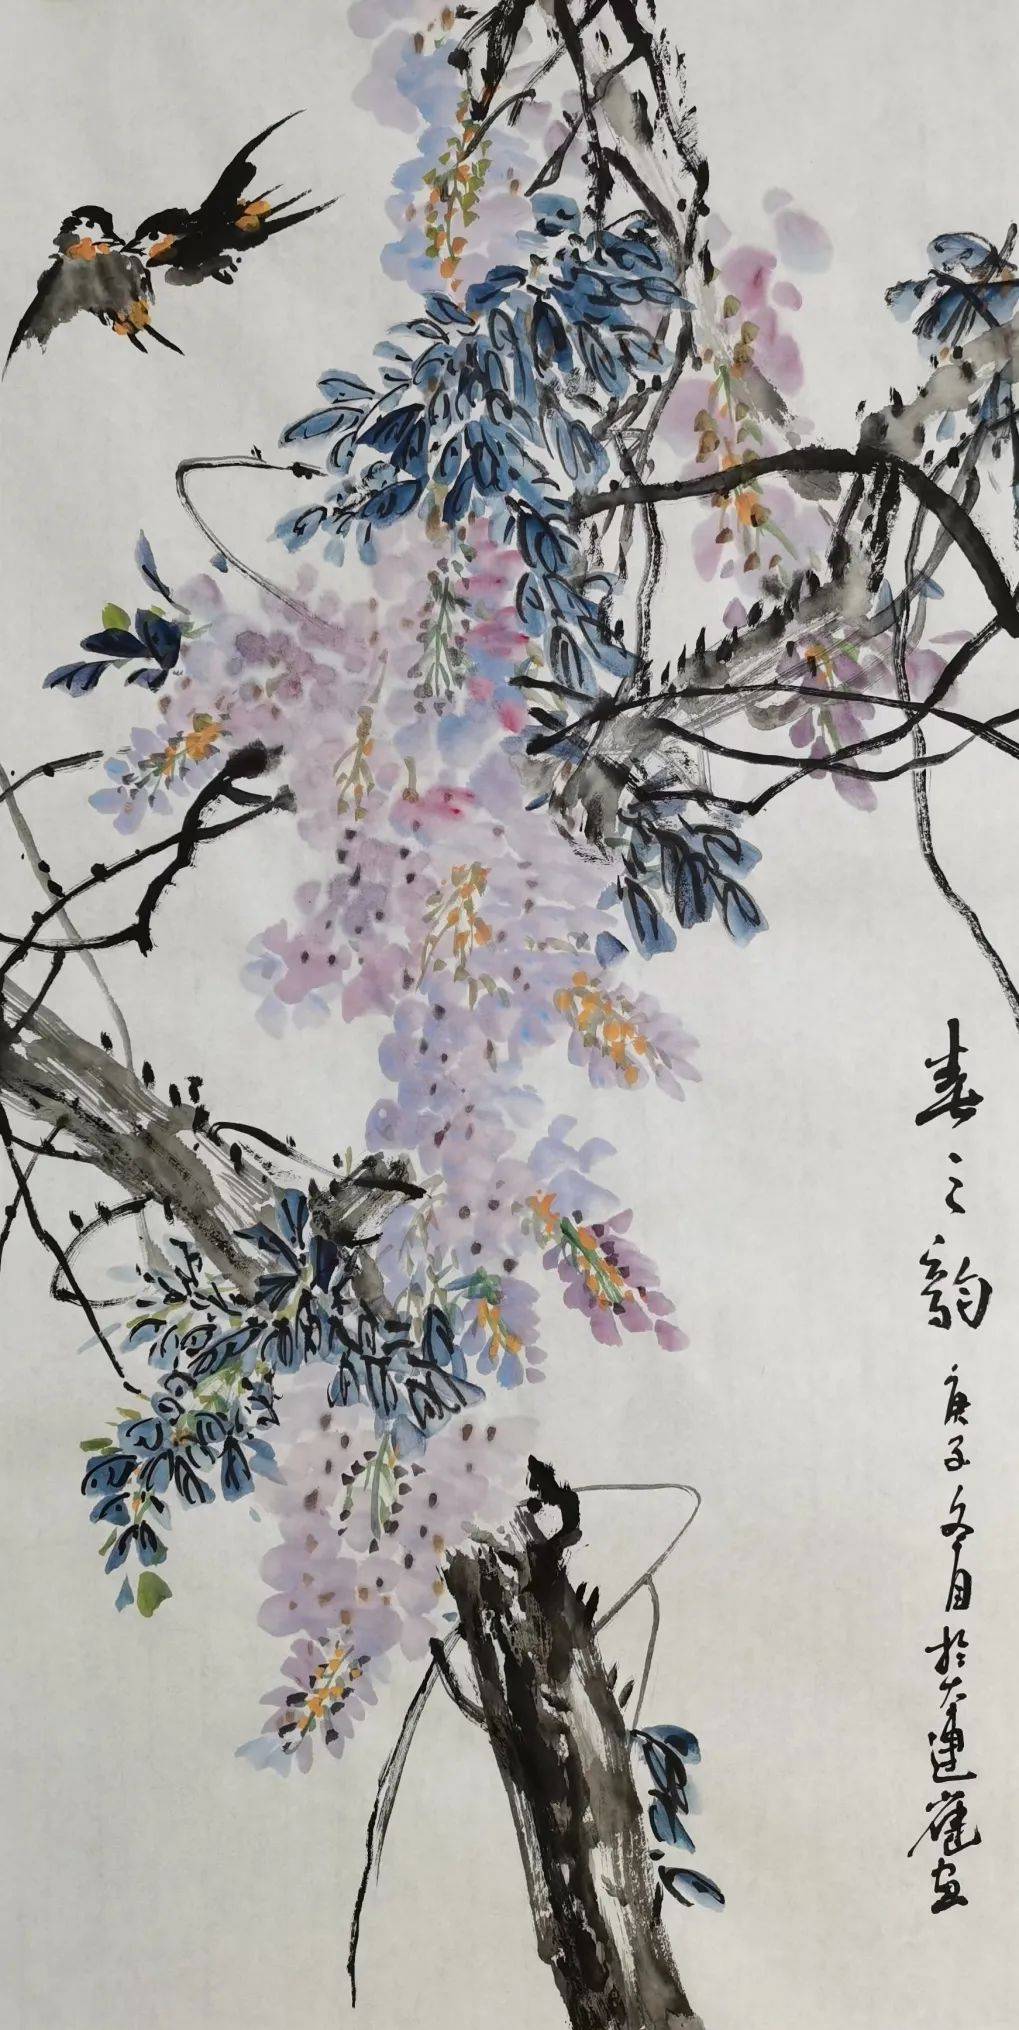 春之韵 庚子冬月於大連画